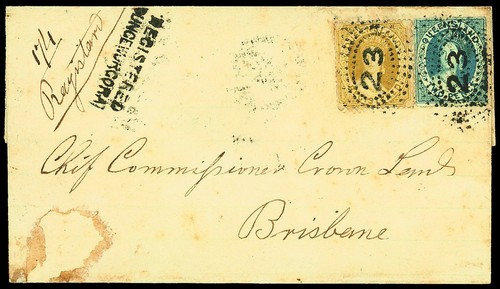 17/1
Registard
REGISTERED
23
QUEENSLAND
23
Chif Commissioner Crown Lands
Brisbane